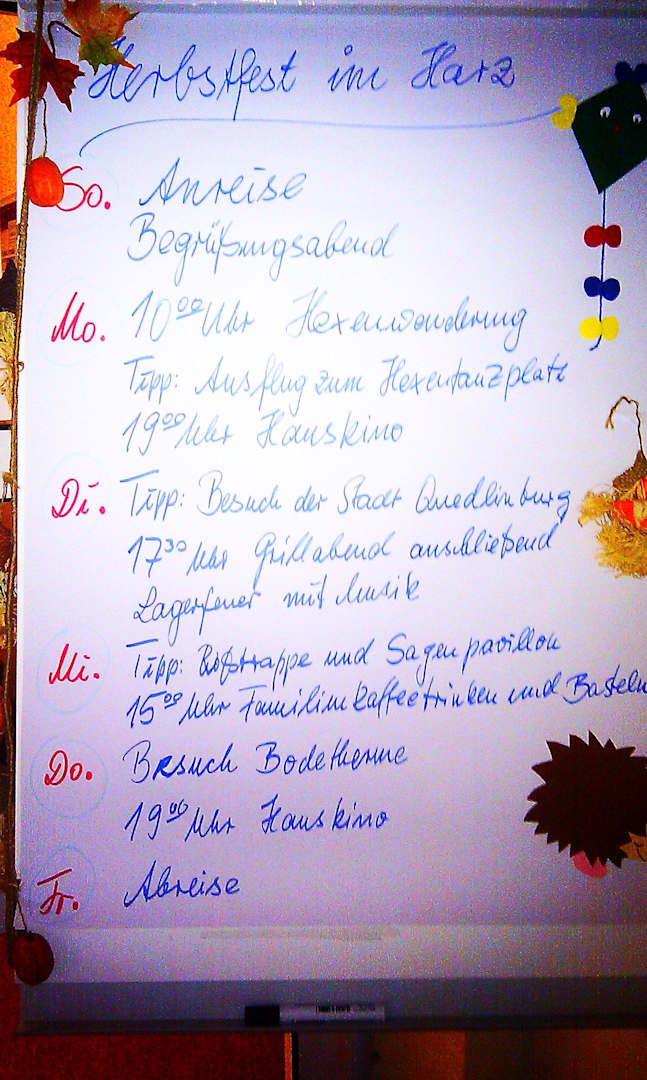 Herbstfest im Harz
So. Anreise
Begrüßungsabend
Mo. 10⁰⁰ Uhr Hexenwanderung
Tipp: Ausflug zum Hexentanzplatz
19⁰⁰ Uhr Hauskino
Di. Tipp: Besuch der Stadt Quedlinburg
17³⁰ Uhr Grillabend anschließend
Lagerfeuer mit Musik
Mi. Tipp: Roßtrappe und Sagenpavillon
15⁰⁰ Uhr Familienkaffeetrinken und Basteln
Do. Besuch Bodetherme
19⁰⁰ Uhr Hauskino
Fr. Abreise